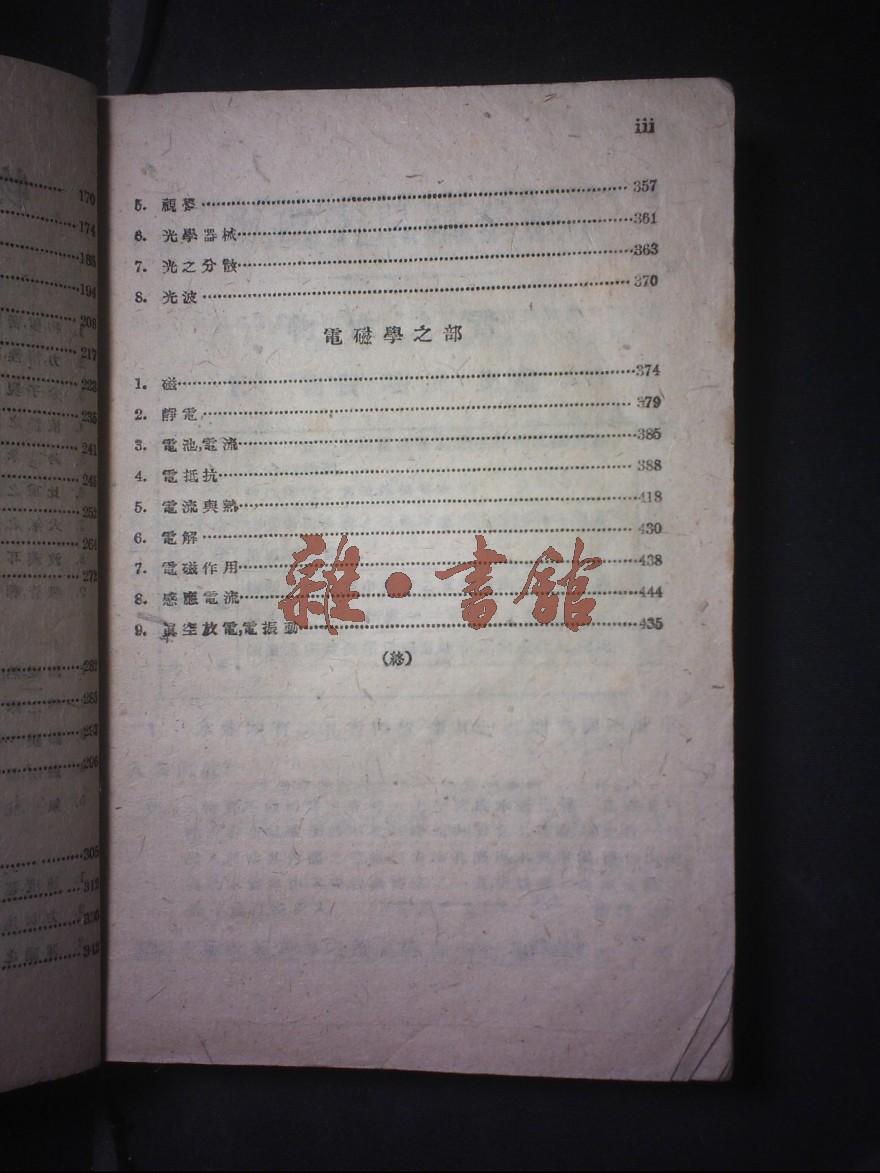 170
174
185
194
208
217
223
235
241
245
252
264
272
282
285
293
296
305
312
330
342
iii
5. 視覺 357
6. 光學器械 361
7. 光之分散 363
8. 光波 370
電磁學之部
1. 磁 374
2. 靜電 379
3. 電池,電流 385
4. 電抵抗 388
5. 電流與熱 418
6. 電解 430
7. 電磁作用 438
8. 感應電流 444
9. 真空放電,電振動 435
(終)
雜·書館